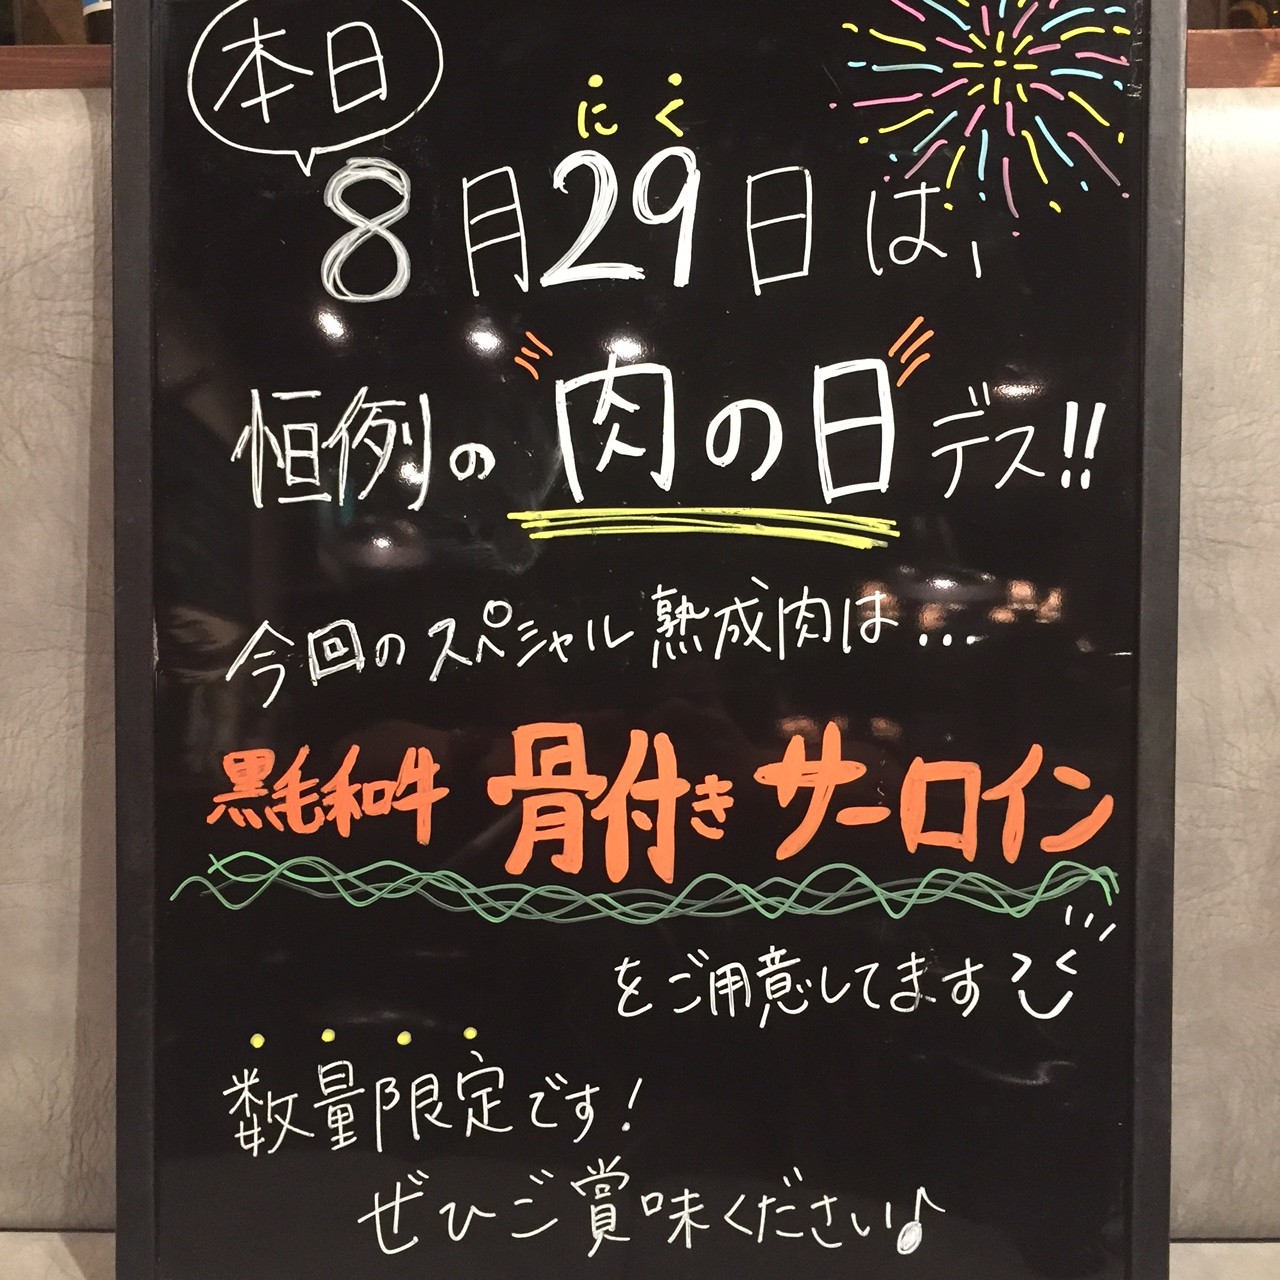 本日
にく
8月29日は、
恒例の"肉の日"デス!!
今回のスペシャル熟成肉は...
黒毛和牛 骨付きサーロイン
をご用意してます
数量限定です!
ぜひご賞味ください♪